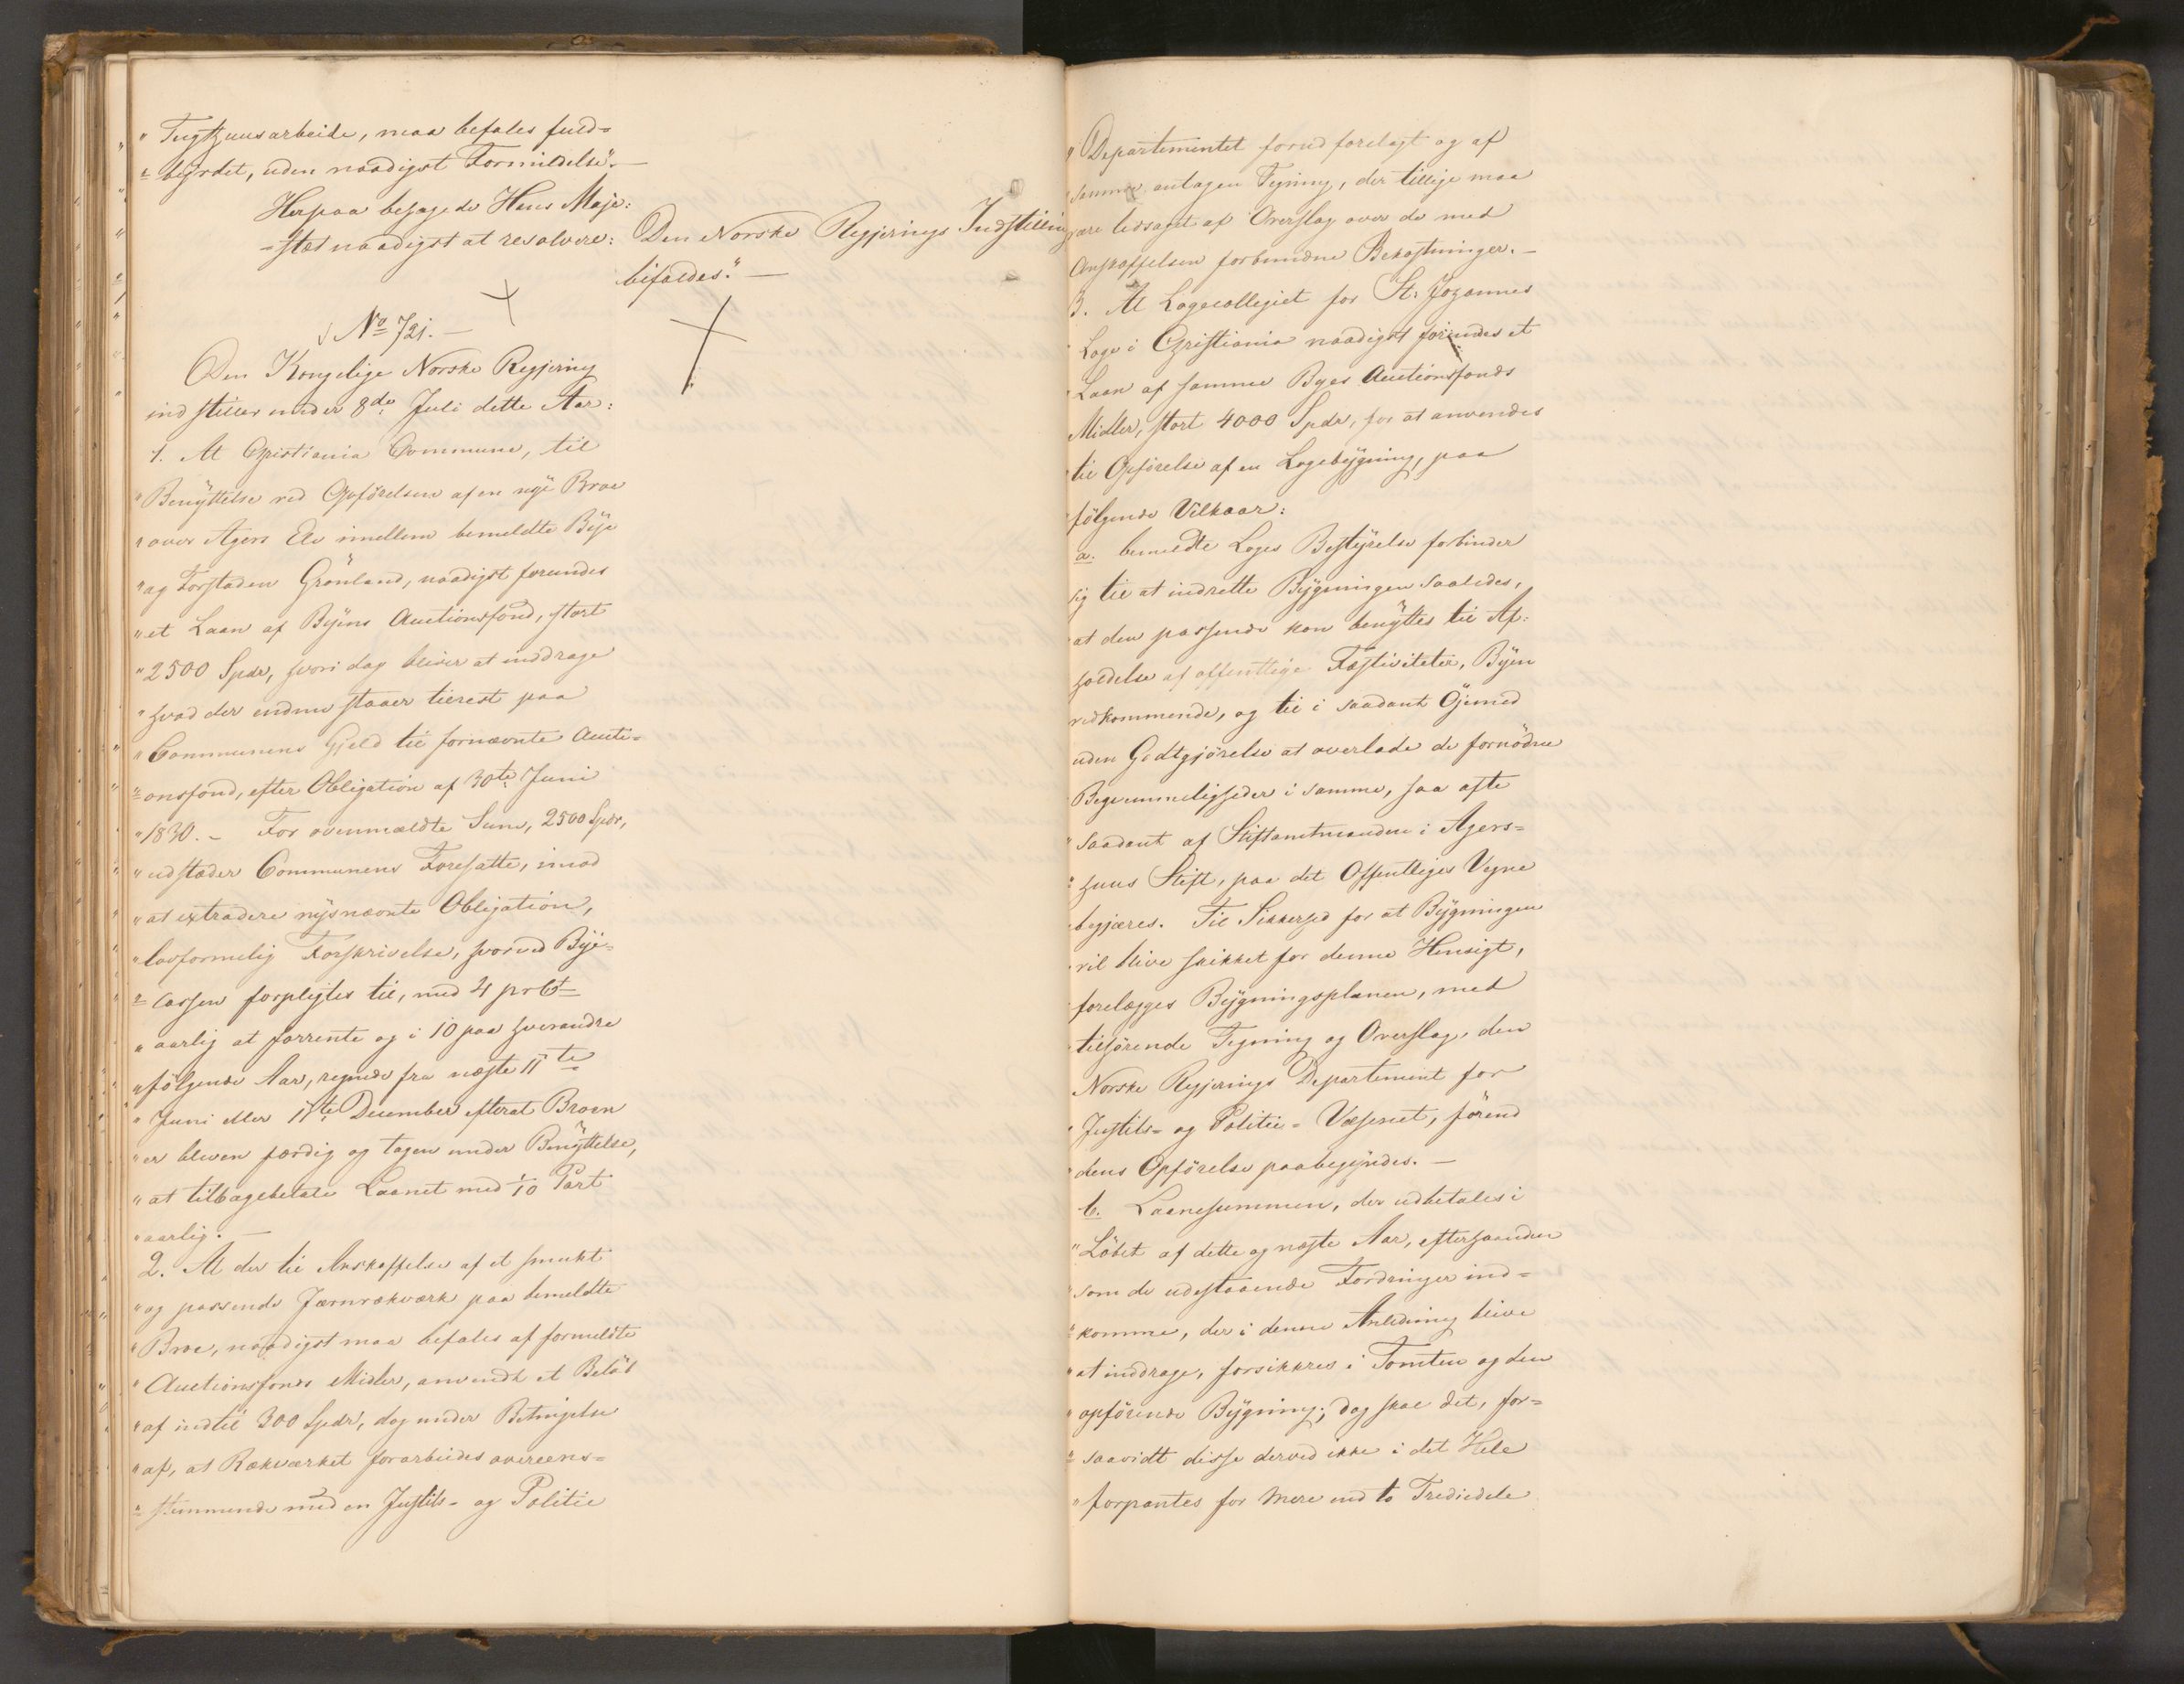 "Tugthuusarbeide, maa befales fuld-
"byrdet, uden naadigst Formildelse".—
Herpaa behagede Hans Maje:
-stæt naadigst at resolvere:
Den Norske Regjerings Indstilling
bifaldes."—
No 721.—
Den Kongelige Norske Regjering
indstiller under 8de Juli dette Aar:
1. At Christiania Commune, til
"Benyttelse ved Opförelsen af en nye Broe
"over Agers Elv imellem bemeldte Bye
"og Forstaden Grönland, naadigst forundes
"et Laan af Byens Auctionsfond, stort
"2500 Spdr, hvori dog bliver at inddrage
"hvad der endnu staaer tilrest paa
"Communens Gjeld til fornævnte Aucti-
"onsfond, efter Obligation af 30te Juni
"1830.— For ovenmældte Sum, 2500 Spdr,
"udstæder Communens Foresatte, imod
"at extradere nysnævnte Obligation,
"lovformelig Forskrivelse, hvorved Bye-
"cassen forpligtes til, med 4 prCt
"aarlig at forrente og i 10 paa hverandre
"fölgende Aar, regnede fra næste 11te
"Juni eller 11te December efterat Broen
"er bleven færdig og tagen under Benyttelse,
"at tilbagebetale Laanet med 1/10 Part
"aarlig.—
2. At der til Anskaffelse af et smukt
"og passende Jernrækværk paa bemeldte
"Broe, naadigst maa befales af formeldte
"Auctionsfonds Midler, anvendt et Belöb
"af indtil 300 Spdr, dog under Betingelse
"af, at Rækværket forarbeides overeens-
"stemmende med en Justits- og Politie
"Departementet forud forelagt og af
samme antagen Tegning, der tillige maa
være ledsaget af Overslag over de med
Anskaffelsen forbundne Bekostninger.—
3. At Logecollegiet for St. Johannes
Loge i Christiania naadigst forundes et
Laan af samme Byes Auctionsfonds
Midler, stort 4000 Spdr, for at anvendes
til Opförelse af en Logebygning, paa
"fölgende Vilkaar:
a. bemeldte Loges Bestyrelse forbinder
sig til at indrette Bygningen saaledes,
at den passende kan benyttes til Af-
holdelse af offentlige Festiviteter, Byen
vedkommende, og til i saadant Öjemed
uden Godtgjörelse at overlade de fornödne
Beqvemmeligheder i samme, saa ofte
"saadant af Stiftamtmanden i Agers-
"huus Stift, paa det Offentliges Vegne
begjæres. Til Sikkerhed for at Bygningen
vil blive skikket for denne Hensigt,
forelægges Bygningsplanen, med
tilhörende Tegning og Overslag, den
Norske Regjerings Departement for
"Justits- og Politie-Væsenet, förend
"dens Opförelse paabegyndes.—
b. Laanesummen, der udbetales i
"Löbet af dette og næste Aar, efterhaanden
"som de udestaaende Fordringer ind-
"komme, der i denne Anledning blive
"at inddrage, forsikkres i Tomten og den
"opförende Bygning; dog skal det, for-
"saavidt disse derved ikke i det Hele
"forpantes for mere end to Trediedele